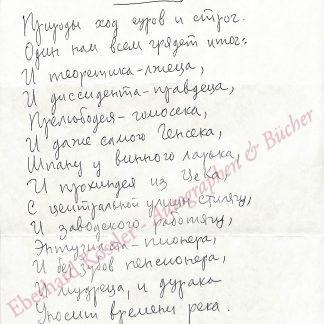 Природы ход суров и строг.
Один нам всем грядет итог:
И теоретика-лжеца,
И диссидента-правдеца,
Прелюбодея-гомосека,
И даже самого Генсека,
Шпану у винного ларька,
И прохиндея из ЦеКа,
С центральной улицы стилягу,
И заводского работягу,
Энтузиаста-пионера,
И без зубов пенсионера,
И мудреца, и дурака
Уносит времени река.
Eberhard Köstler - Autographen & Bücher